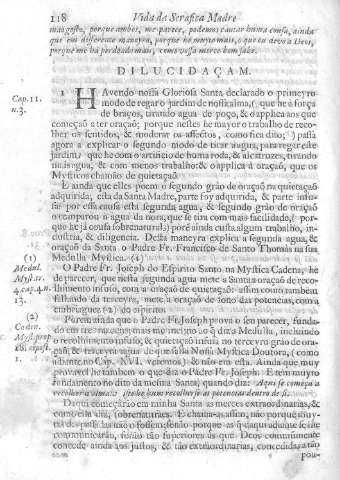 118 Vida da Serafica Madre
mao gosto, porque ambos, me parece, podemos cantar huma cousa, ainda
que em differente maneyra, porque he muyto mais, o que eu devo a Deos,
porque me ha perdoado mais, como vossa merce bem sabe.
DILUCIDAÇAM.
Cap. 11.
n. 3.
1 HAvendo nossa Gloriosa Santa declarado o primeyro
modo de regar o jardim de nossa alma, (que he á força
de braços, tirando agua de poço, & o applica aos que
começaõ a ter oraçaõ; porque nestes he mayor o trabalho de reco-
lher os sentidos, & moderar os affectos, como fica dito;) passa
agora a explicar o segundo modo de tirar agua, para regar este
jardim; que he com o artificio de huma roda, & alcatruzes, tirando
mais agua, & com menos trabalho: & o applica á oraçaõ, que os
Mysticos chamaõ de quietaçaõ.
E ainda que elles poem o segundo gráo de oraçaõ na quietaçaõ
adquirida; esta da Santa Madre, parte foy adquirida, & parte infu-
sa: por essa causa esta segunda agua, & segundo gráo de oraçaõ
o comparou à agua da nora, que se tira com mais facilidade, (por-
que he já cousa sobrenatural) porè ainda custa algum trabalho, in-
dustria, & diligencia. Desta maneyra explica a segunda agua, &
oraçaõ da Santa o Padre Fr. Francisco de Santo Thomàs na sua
Medulla Mystica. (1)
(1)
Medul.
Myst. tr.
4. cap. 4. n.
13.
O Padre Fr. Joseph do Espirito Santo na Mystica Cadena, he
de parecer, que nesta segunda agua mete a Santa a oraçaõ de reco-
lhimento infuso, com a oraçaõ de quietaçaõ: assim como tambem
fallando da terceyra, mete a oraçaõ de sono das potencias, com a
embriaguez (2) do espirito.
(2)
Caden.
Myst. prop.
1.
Porem, ainda que o Padre Fr. Joseph prova o seu parecer, funda-
do em tres razoens; mais me inclino ao q̃ diz a Medulla, incluindo
o recolhimento infuso, & quietaçaõ infusa no terceyro gráo de ora-
çaõ, & terceyra agua de que falla Nossa Mystica Doutora, (como
adiante no Cap. XVI. veremos) & naõ em esta. Ainda que muy
provavel he tambem o que diz o Padre Fr. Joseph. E tem muyto
fundamento no dito da mesma Santa, quando diz: Aqui se começa a
recolher a alma: isto he hum recolher-se as potencias dentro de si.
Daqui começaraõ em minha Santa as merces extraordinarias, &
como ella diz, sobrenaturaes. E chama-as assim, naõ porque muy-
tas das passadas naõ o fossem; senaõ porque as q̃ daqui adiante se lhe
communicaraõ, foraõ taõ superiores às que Deos commummente
concede ainda aos justos, & taõ extraordinarias, concedidas a taõ
pou-